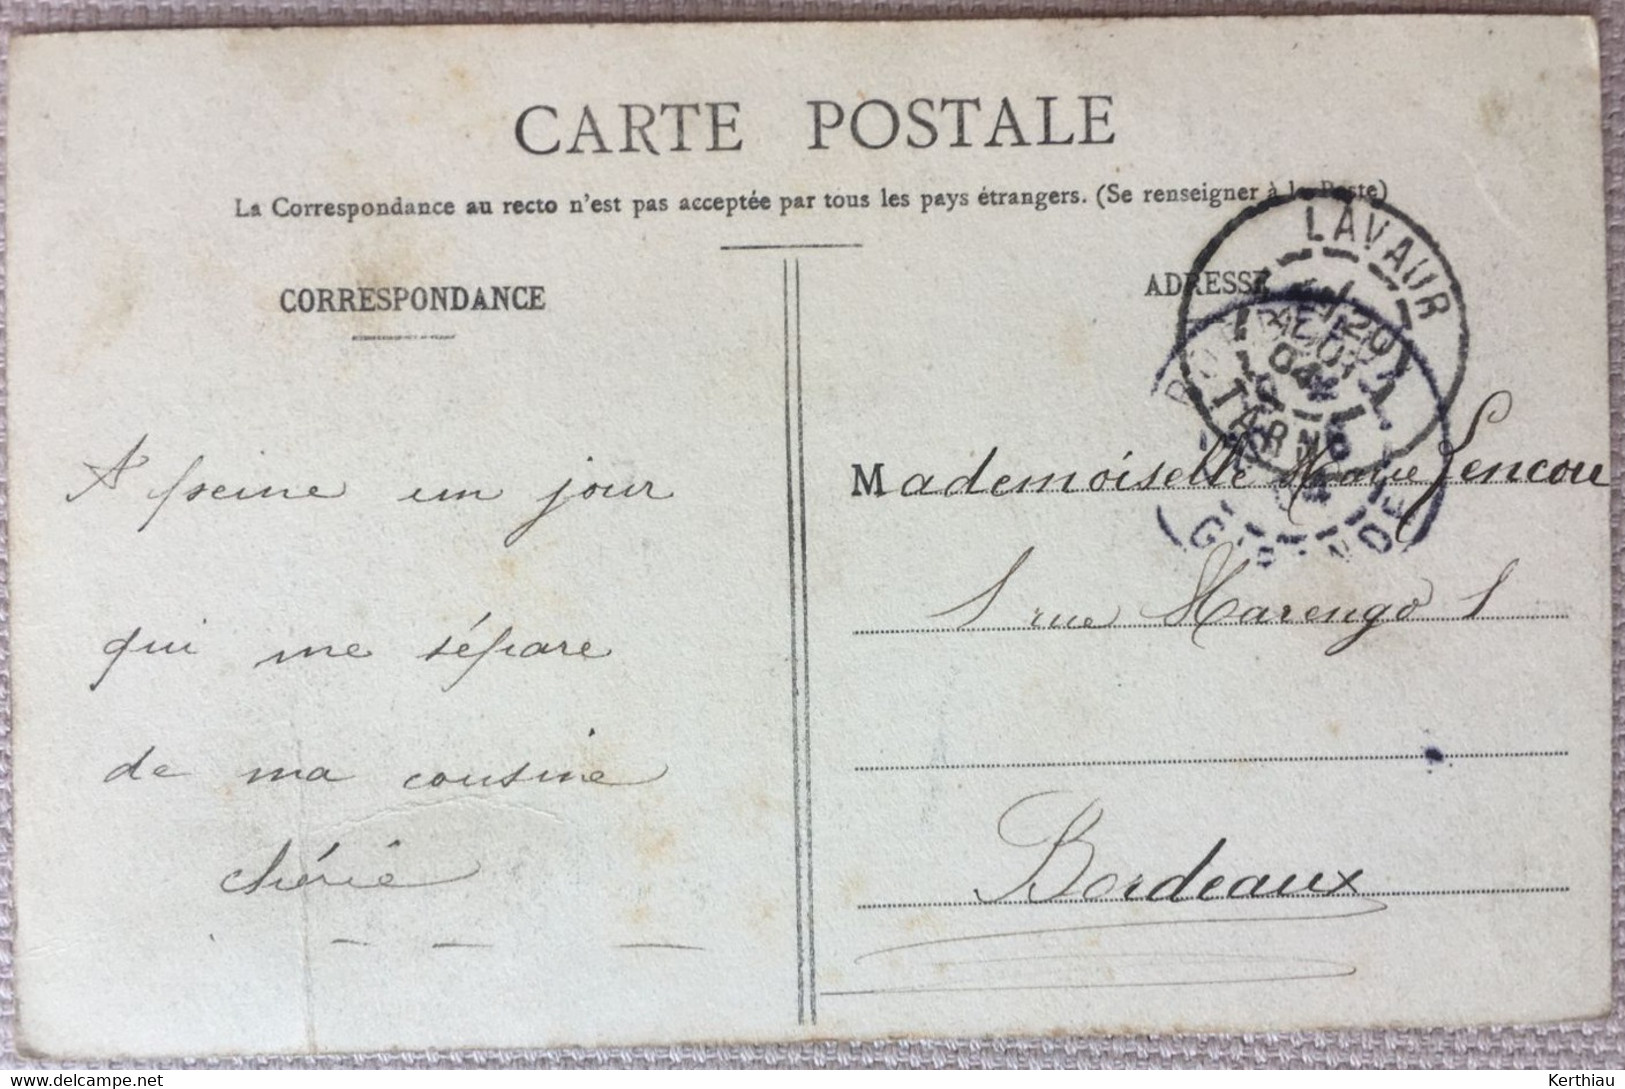 CARTE POSTALE
La Correspondance au recto n'est pas acceptée par tous les pays étrangers. (Se renseigner à la Poste)
CORRESPONDANCE
A peine un jour
qui me sépare
de ma cousine
chérie
ADRESSE
LAVAUR
TARN
BORDEAUX
GIRONDE
Mademoiselle Marie Lencou
1 rue Marengo 1
Bordeaux
delcampe.net
Kerthiau